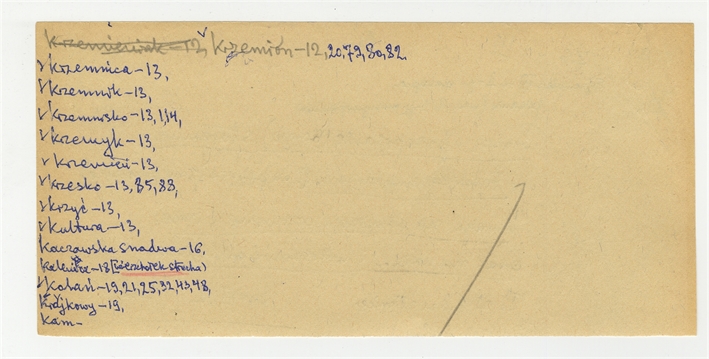 Krzemieniak-12, Krzemión-12, 20,79,80,82.
Krzemnica-13,
Krzemnik-13,
Krzemnisko-13,114,
Krzemyk-13,
Krzenicii-13,
Krzesko-13,85,88,
Krzyć-13,
Kultura-13,
Kaczawska snadwa-16,
-18 (wierzchołek strucha)
Kobań-19,21,25,32,43,48,
Krójkowy-19,
Kam-